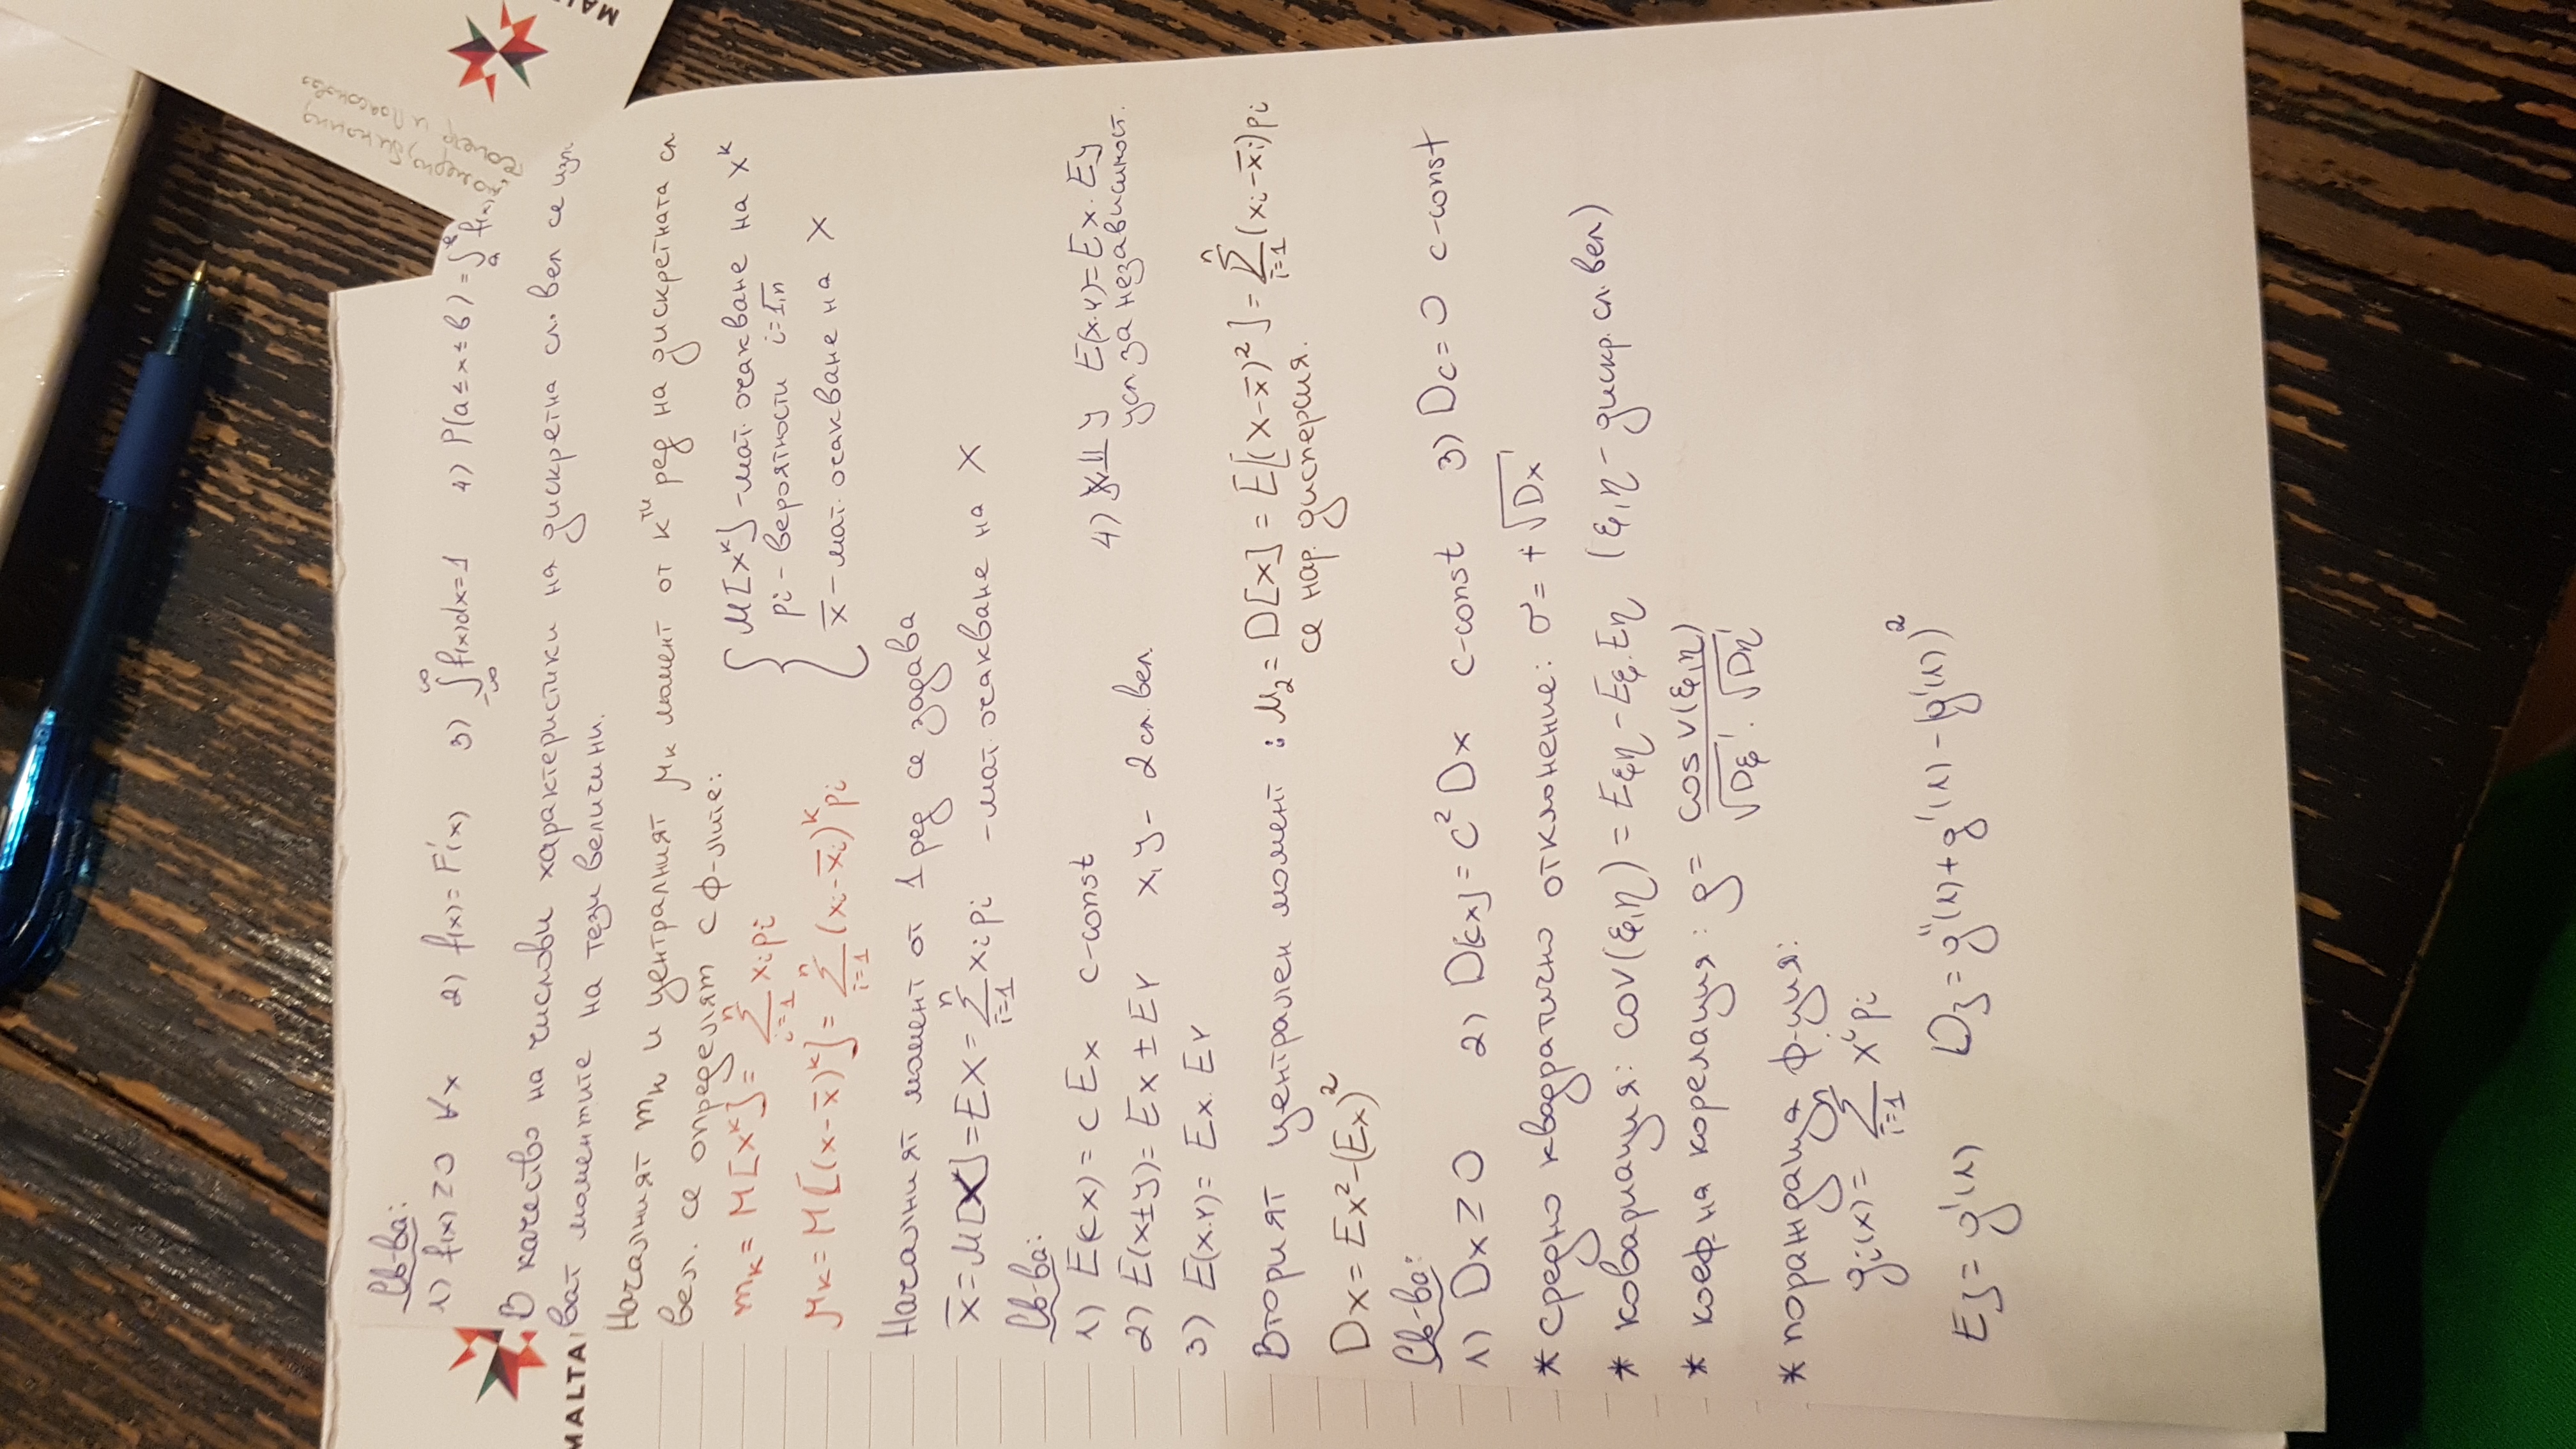 Св-ва:
1) f(x) ≥ 0 ∀x 2) f(x) = F'(x) 3) ∫_{-∞}^{∞} f(x)dx = 1 4) P(a ≤ x ≤ b) = ∫_a^b f(x)
В качество на числови характеристики на дискретна сл. вел се изп.
ват моментите на тези величини.
Началният m_k и централният μ_k момент от k^ти ред на дискретната сл.
вел. се определят с ф-лите:
m_k = M[x^k] = Σ_{i=1}^{n} x_i p_i
μ_k = M[(x-x̄)^k] = Σ_{i=1}^{n} (x_i - x̄_i)^k p_i
{ M[x^k] - мат. очакване на x^k
p_i - вероятности i = 1,n
x̄ - мат. очакване на X
Началният момент от 1 ред се задава
x̄ = M[X] = EX = Σ_{i=1}^{n} x_i p_i - мат. очакване на X
Св-ва:
1) E(cx) = c Ex c-const
2) E(x±y) = Ex ± EY x, y - 2 сл. вел.
3) E(x.Y) = Ex. EY
4) X ⫫ y E(x.Y) = Ex. Ey
усл за независимост.
Вторият централен момент : μ_2 = D[x] = E[(x-x̄)²] = Σ_{i=1}^{n} (x_i - x̄_i) p_i
се нар. дисперсия.
Dx = Ex² - (Ex)²
Св-ва:
1) Dx ≥ 0 2) D[cx] = c² Dx c-const 3) Dc = 0 c-const
* средно квадратично отклонение: σ = +√Dx
* ковариация: cov(ξ,η) = Eξη - Eξ.Eη (ξ,η - дискр. сл. вел)
* коеф. на корелация: ρ = cos v(ξ,η) / √Dξ . √Dη
* пораждаща ф-ция:
g_i(x) = Σ_{i=1}^{n} x^i p_i
Eξ = g'(1) Dξ = g''(1) + g'(1) - (g'(1))²
MALTA
и Поасоново